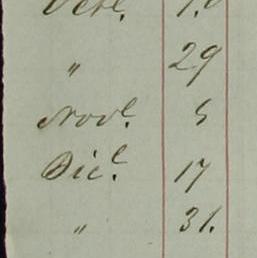 " 29
Novl. 5
Dicl. 17
" 31.